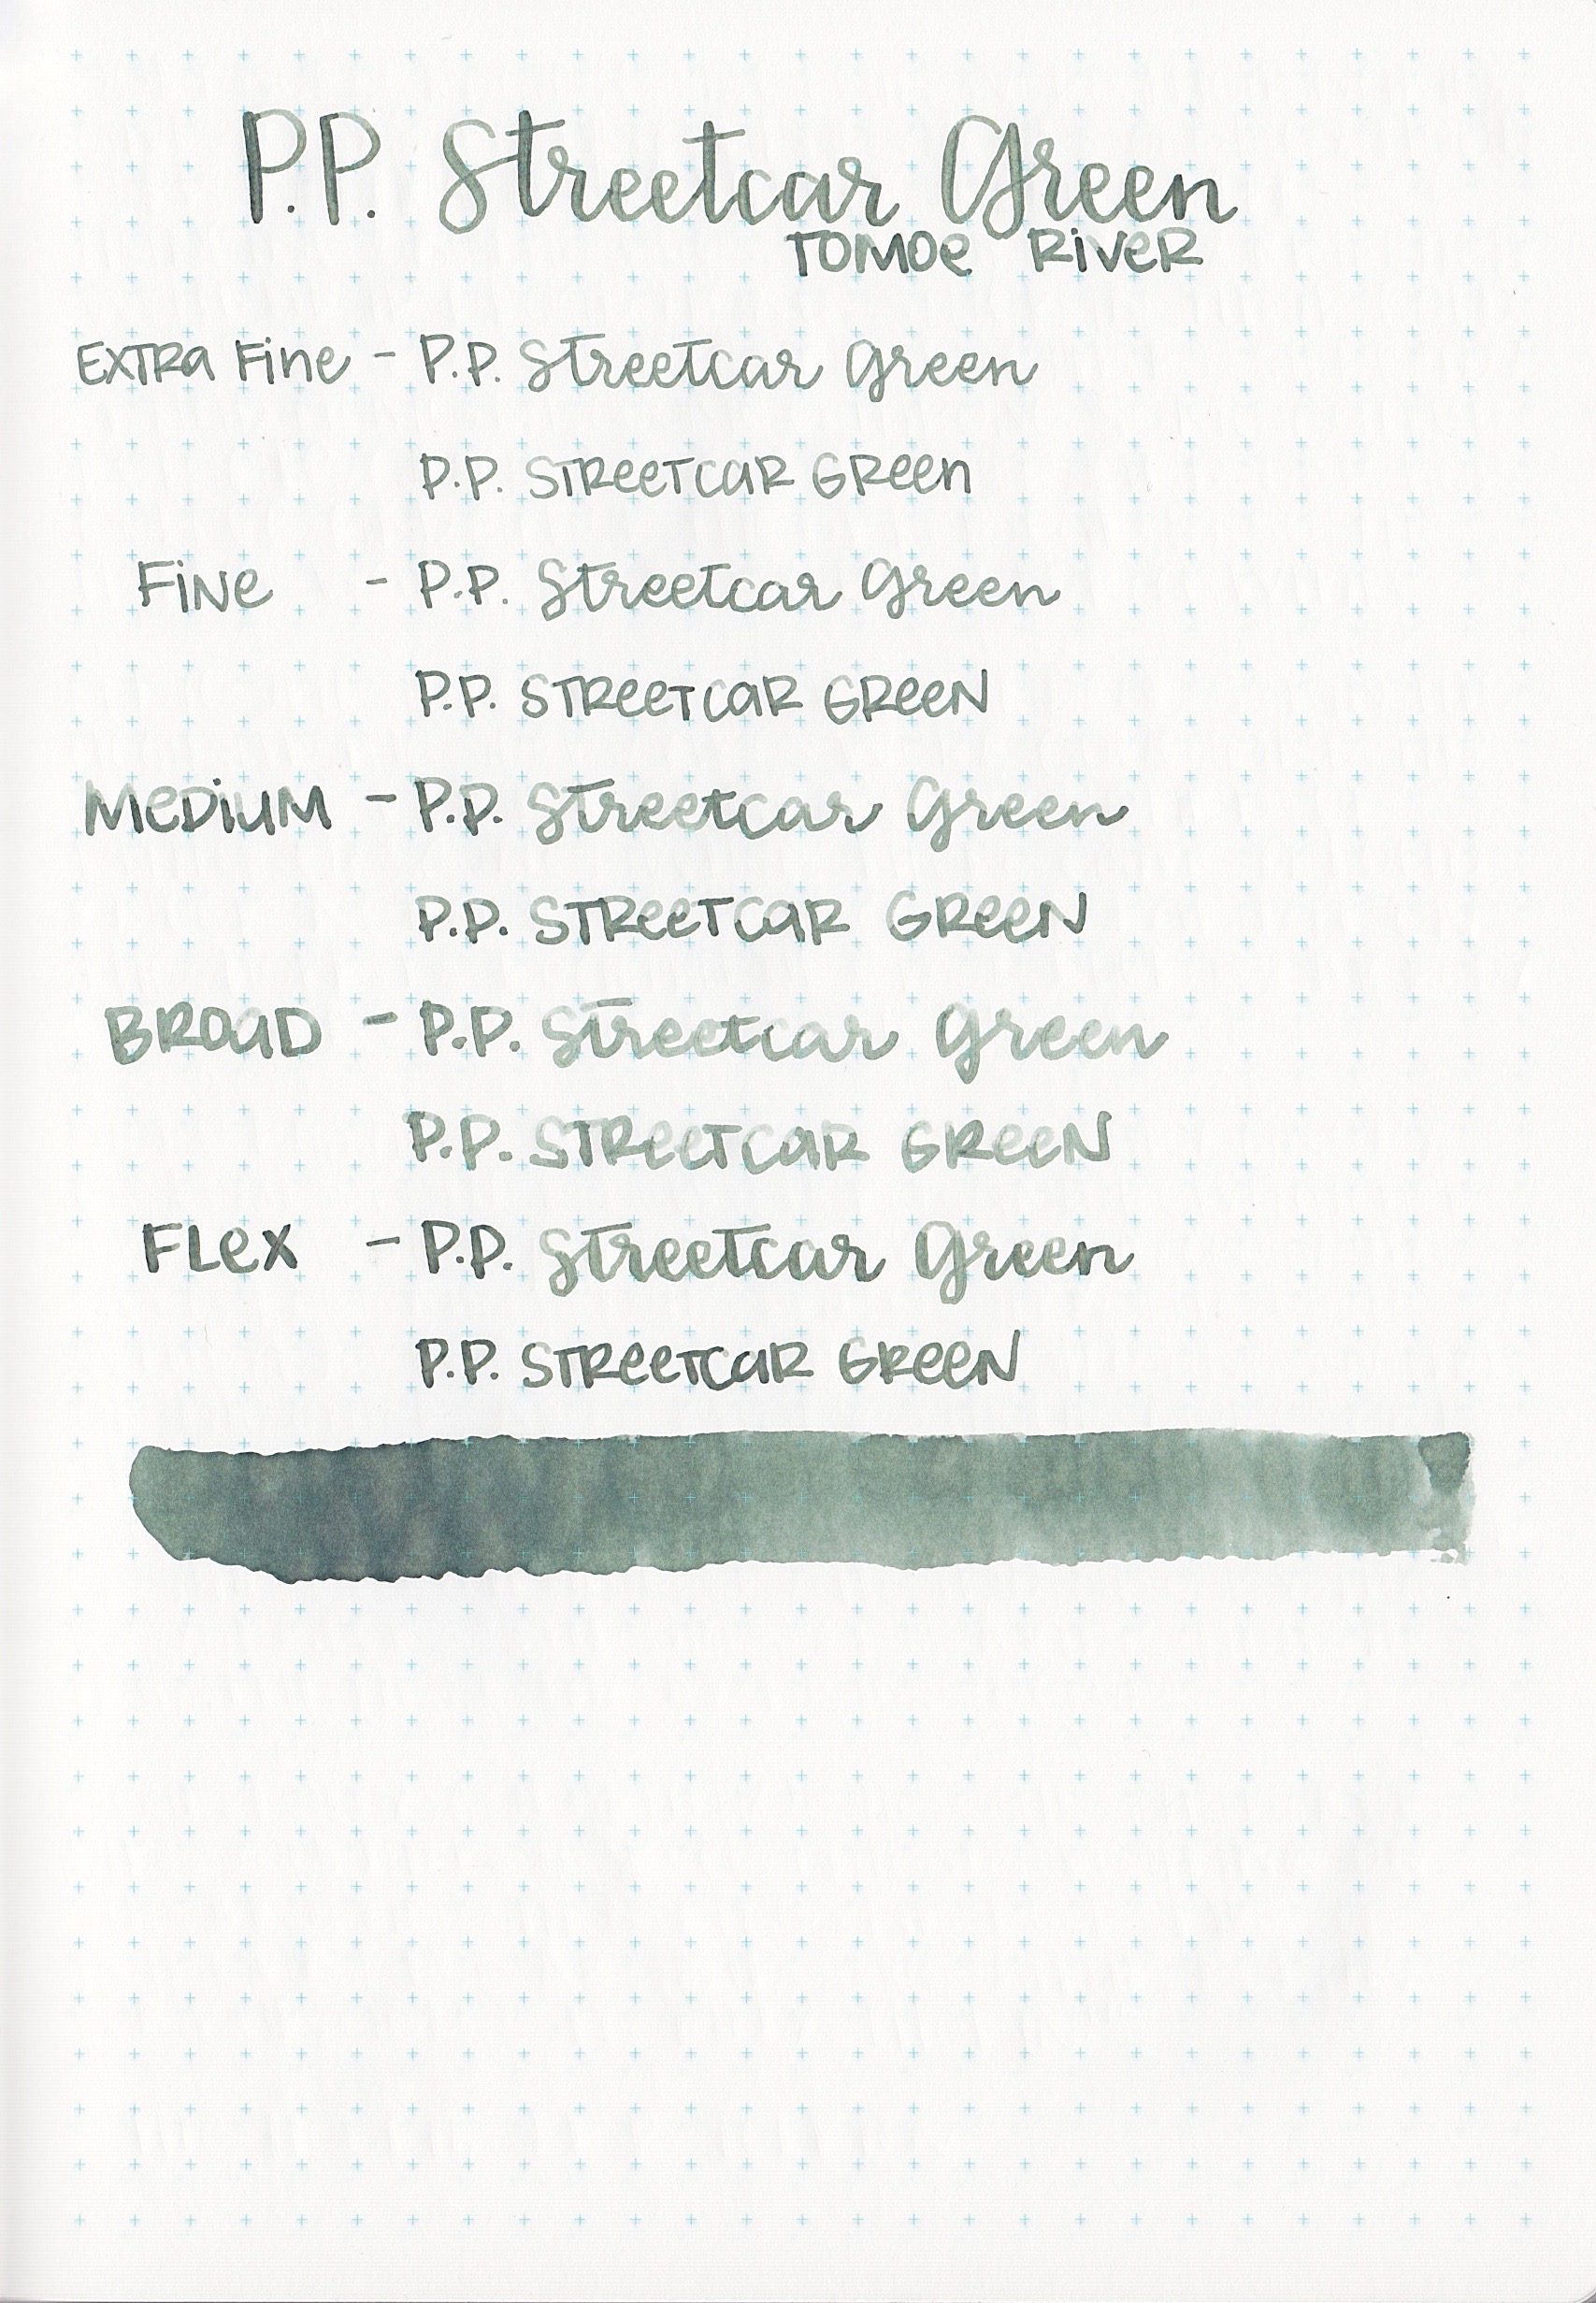 P.P. Streetcar Green
TOMOe RiVeR
EXTRa Fine - P.P. Streetcar Green
P.P. STReeTCaR GReen
FiNe - P.P. Streetcar Green
P.P. STReeTCaR GReeN
MeDiUM - P.P. Streetcar Green
P.P. STReeTCaR GReeN
BROaD - P.P. Streetcar Green
P.P. STReeTCaR GReeN
FLeX - P.P. Streetcar Green
P.P. STReeTCaR GReeN